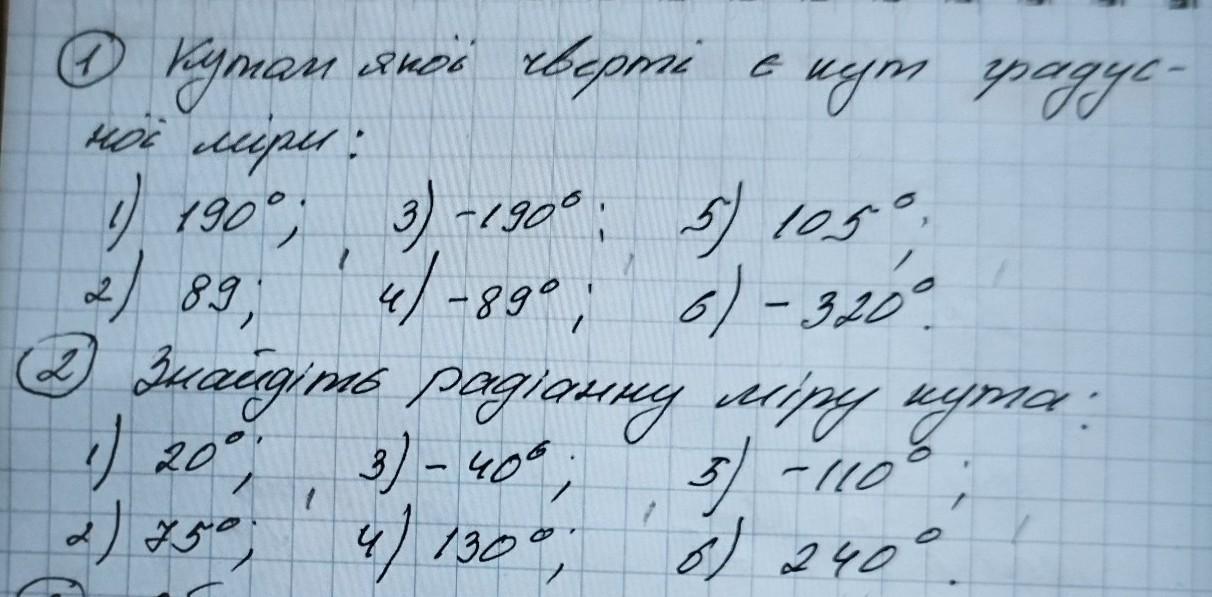 ① Кутом якої чверті є кут градус-
ної міри:
1) 190°; 3) -190°; 5) 105°;
2) 89; 4) -89°; 6) -320°.
② Знайдіть радіанну міру кута:
1) 20°; 3) -40°; 5) -110°;
2) 75°; 4) 130°; 6) 240°.